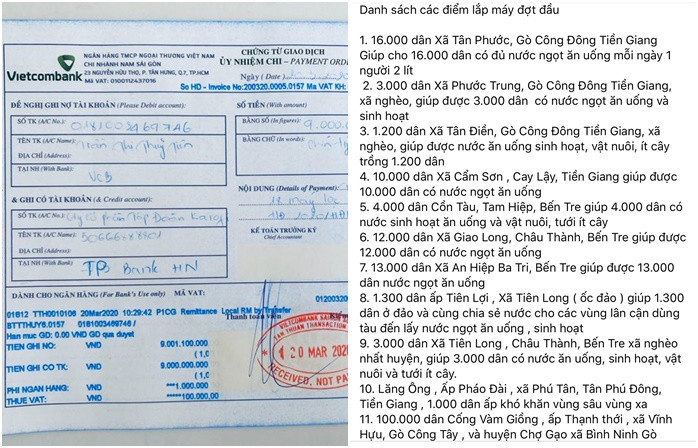 NGÂN HÀNG TMCP NGOẠI THƯƠNG VIỆT NAM
CHI NHÁNH NAM SÀI GÒN
Vietcombank
23 NGUYỄN HỮU THỌ, P. TÂN HƯNG, Q.7, TP.HCM
Mã VAT: 0100112437016
CHỨNG TỪ GIAO DỊCH
ỦY NHIỆM CHI - PAYMENT ORDE
Ngày (Date)
So HD - Invoice No:200320.0005.0157 Ma VAT KH:
ĐỀ NGHỊ GHI NỢ TÀI KHOẢN (Please Debit account):
SỐ TK (A/C No.): 0181003469746
TÊN TK (A/C Name): Trần Thị Thủy Tiên
ĐỊA CHỈ (Address):
TẠI NH (With Bank): VCB
SỐ TIỀN (With amount)
BẰNG SỐ (In figures): 9.000.0
BẰNG CHỮ (In words):
& GHI CÓ TÀI KHOẢN (& Credit account):
SỐ TK (A/C No.): Cty Cổ phần Tập Đoàn
TÊN TK (A/C Name):
ĐỊA CHỈ (Address):
TẠI NH (With Bank): TP Bank HN
NỘI DUNG (Details of Payment):
KẾ TOÁN TRƯỞNG KÝ
Chief Accountant
DÀNH CHO NGÂN HÀNG (For Bank's Use only) MÃ VAT:
0120032
01812 TTH0010106 20Mar2020 10:29:42 P1CG Remittance Local RM by Transfer
BTTTHUY8.0157 0181003469746 /
Han muc GD: 0.00 VND GD qua duyet
TIEN GHI NO: VND 9.001.100.000
(1,0
TIEN GHI CO TK: VND 9.000.000.000
(1,0
PHI NGAN HANG: VND ***1.000.000
THUE VAT: VND *****100.000,00
Thanh toán viên
VIETCOMBANK
TAN THUAN TRANSACTION
20 MAR 2020
RECEIVED, NOT PA
Danh sách các điểm lắp máy đợt đầu
1. 16.000 dân Xã Tân Phước, Gò Công Đông Tiền Giang
Giúp cho 16.000 dân có đủ nước ngọt ăn uống mỗi ngày 1
người 2 lít
2. 3.000 dân Xã Phước Trung, Gò Công Đông Tiền Giang,
xã nghèo, giúp được 3.000 dân có nước ngọt ăn uống và
sinh hoạt
3. 1.200 dân Xã Tân Điền, Gò Công Đông Tiền Giang, xã
nghèo, giúp được nước ăn uống sinh hoạt, vật nuôi, ít cây
trồng 1.200 dân
4. 10.000 dân Xã Cẩm Sơn , Cay Lậy, Tiền Giang giúp được
10.000 dân có nước ngọt ăn uống
5. 4.000 dân Cồn Tàu, Tam Hiệp, Bến Tre giúp 4.000 dân có
nước sinh hoạt ăn uống và vật nuôi, tưới ít cây
6. 12.000 dân Xã Giao Long, Châu Thành, Bến Tre giúp được
12.000 dân có nước ngọt ăn uống
7. 13.000 dân Xã An Hiệp Ba Tri, Bến Tre giúp được 13.000
dân nước ngọt ăn uống
8. 1.300 ấp Tiên Lợi , Xã Tiên Long ( ốc đảo ) giúp 1.300
dân ở đảo và cùng chia sẻ nước cho các vùng lân cận dùng
tàu đến lấy nước ngọt ăn uống , sinh hoạt
9. 3.000 dân Xã Tiên Long , Châu Thành, Bến Tre xã nghèo
nhất huyện, giúp 3.000 dân có nước ăn uống, sinh hoạt, vật
nuôi và tưới ít cây.
10. Lăng Ông , Ấp Pháo Đài , xã Phú Tân, Tân Phú Đông,
Tiền Giang , 1.000 dân ấp khó khăn vùng sâu vùng xa
11. 100.000 dân Cống Vàm Giồng , ấp Thạnh thới , xã Vĩnh
Hựu, Gò Công Tây , và huyện Chợ Gạo xã Bình Ninh Gò